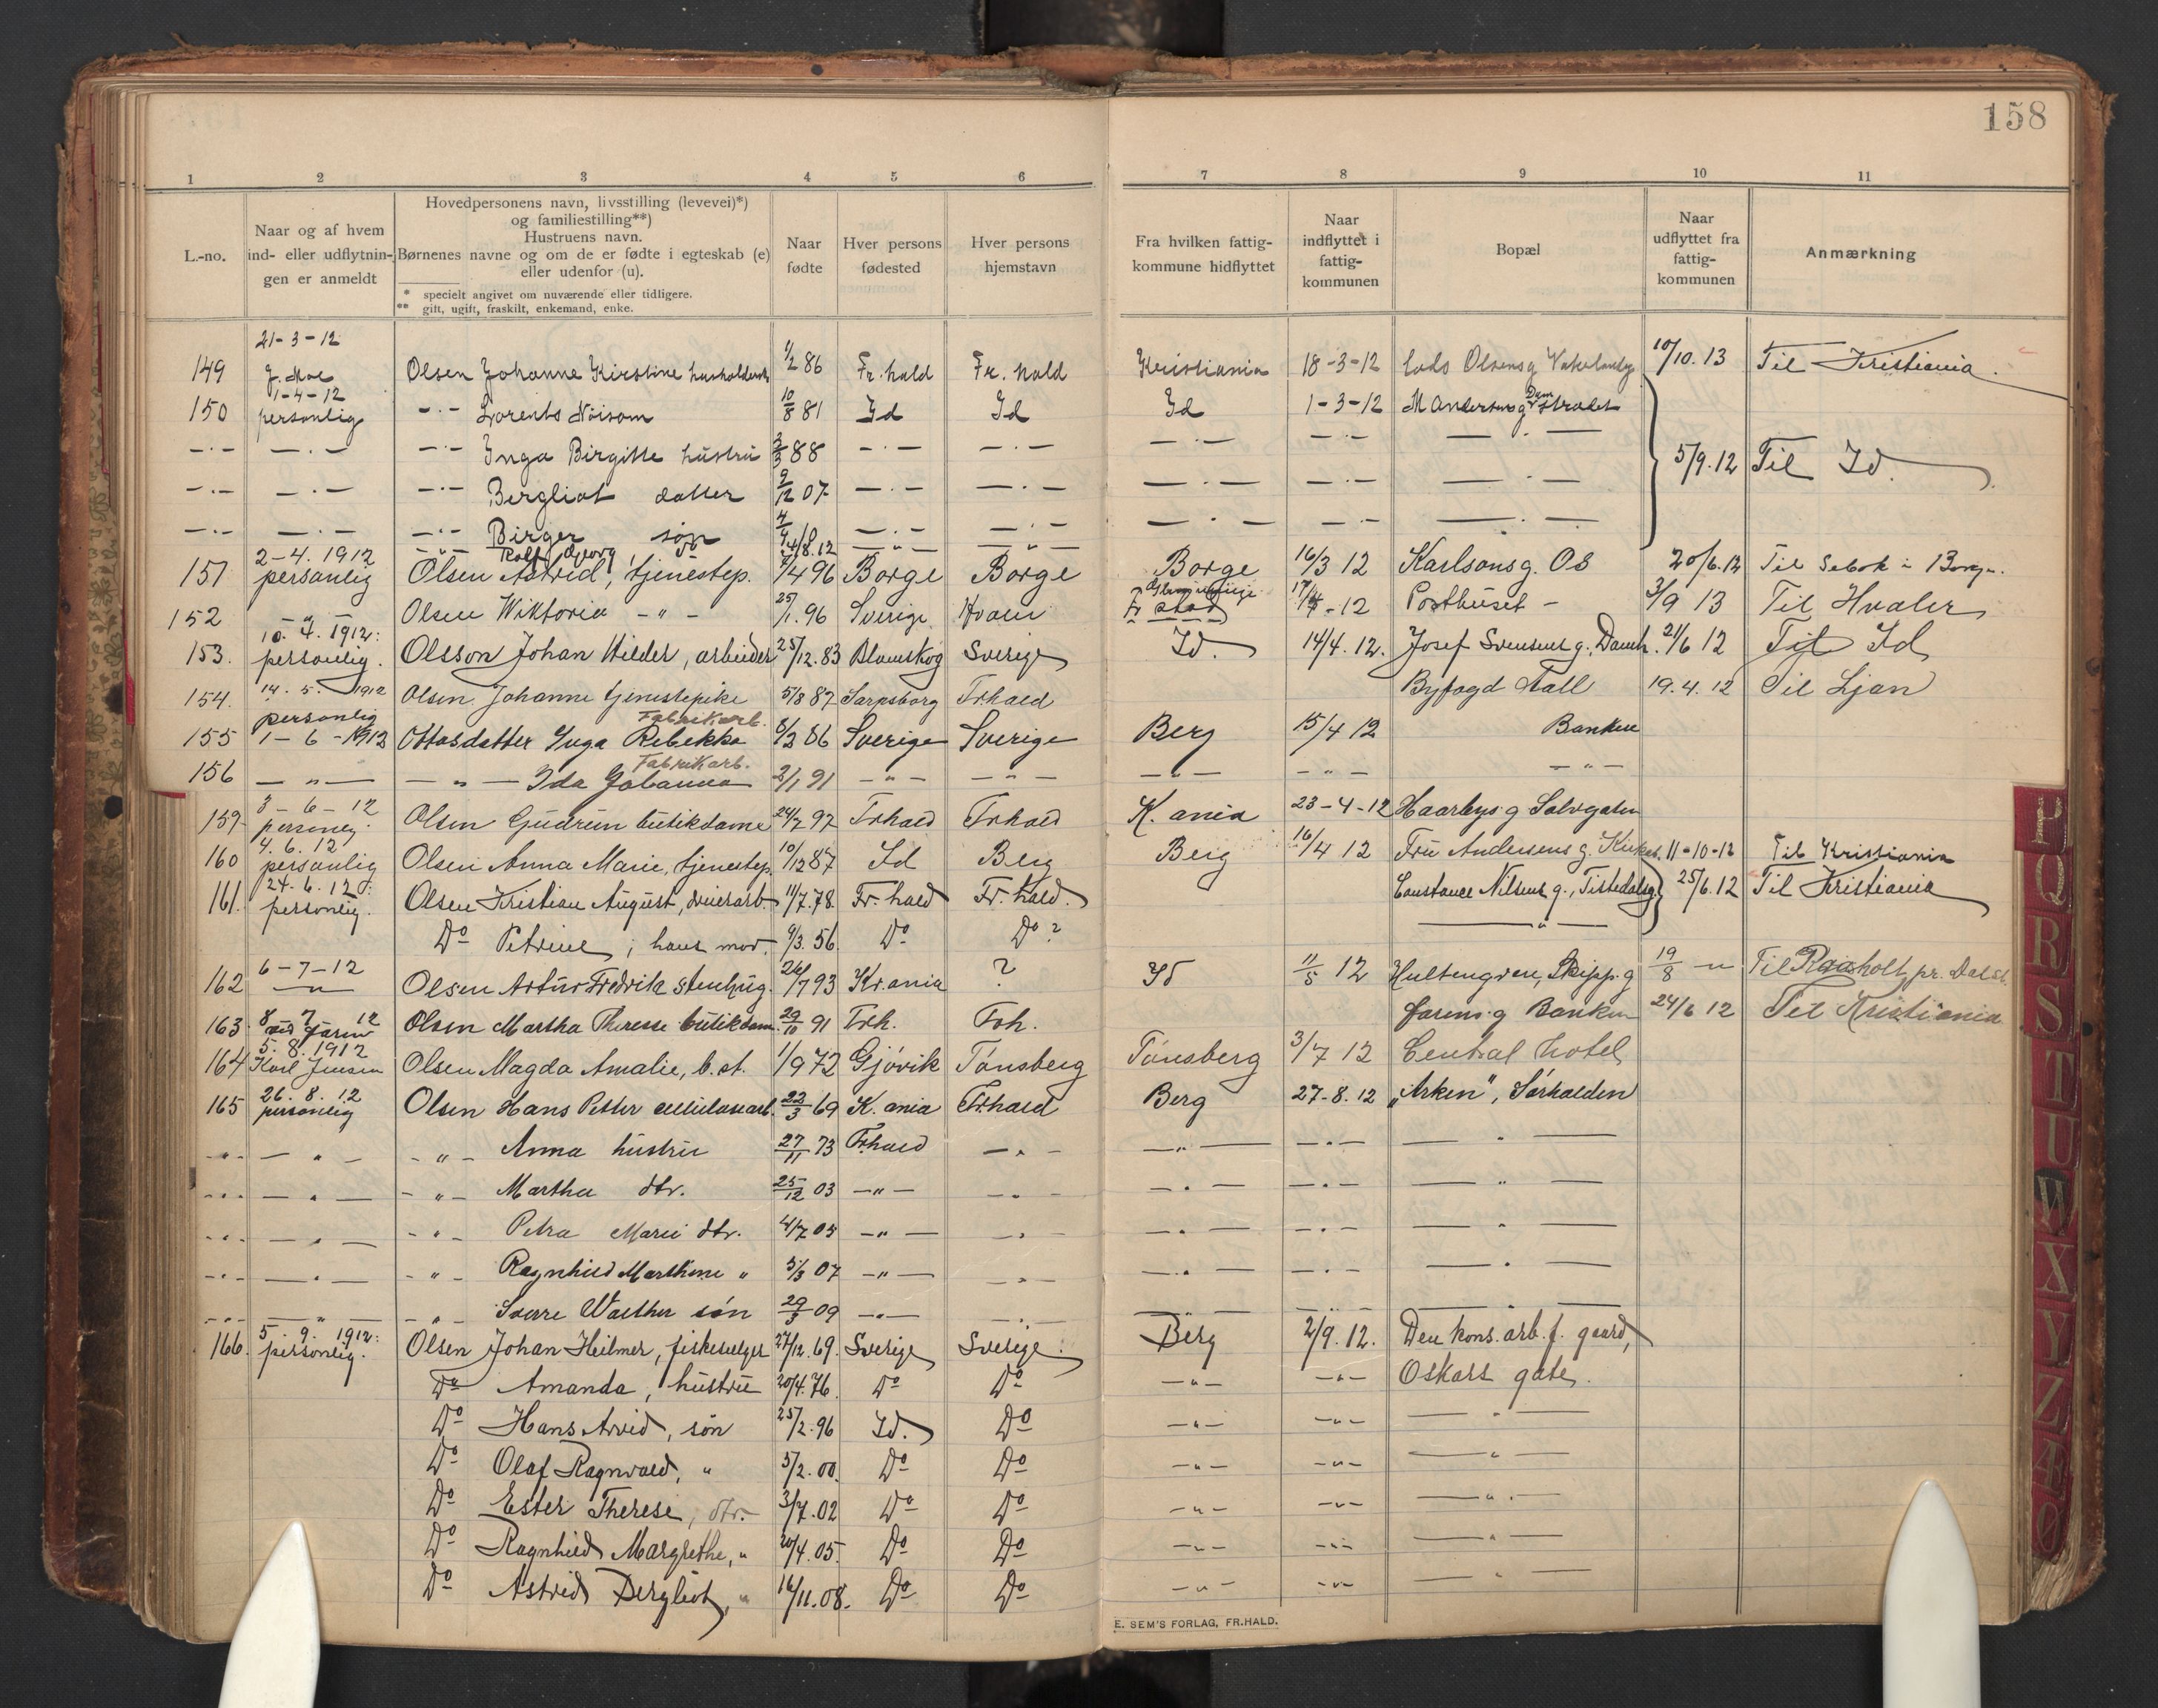 158
1 2 3 4 5 6 7 8 9 10 11
L.-no.
Naar og af hvem
ind- eller udflytnin-
gen er anmeldt
Hovedpersonens navn, livsstilling (levevei)*)
og familiestilling**)
Hustruens navn.
Børnenes navne og om de er fødte i egteskab (e)
eller udenfor (u).
* specielt angivet om nuværende eller tidligere.
** gift, ugift, fraskilt, enkemand, enke.
Naar
fødte
Hver persons
fødested
Hver persons
hjemstavn
Fra hvilken fattig-
kommune hidflyttet
Naar
indflyttet i
fattig-
kommunen
Bopæl
Naar
udflyttet fra
fattig-
kommunen
Anmærkning
21-3-12
149 J. Moe Olsen Johanne Kirstine 1/2 86 Fr. hald Fr. hald Kristiania 18-3-12 Olsens g 10/10.13 Til Kristiania.
1-4-12
150 personlig -·- Lorents 10/8 81 Id Id Id 1-3-12 M Andersens g Dam strædet
-·- -·- -·- Inga Birgitte hustru 2/3 88 -·- -·- -·- -·- -·- 5/9.12 Til Id.
-·- -·- -·- Bergliot datter 9/12 07 -·- -·- -·- -·- -·-
-·- -·- -·- Birger søn -·- -·- -·- -·- -·-
-"- Rolf Georg do 4/8.12 -"- -"-
2-4. 1912
151 personlig Olsen Astrid, tjenestep. 9/4 96 Borge Borge Borge 16/3 12 Karlsens g. Os 20/6.12 Til Sebok i Borge.
152 -"- Olsen Wiktoria -"- 25/1. 96 Sverige Hvaler Fr stad 17/4-12 Posthuset - 3/9 13 Til Hvaler
10. 4. 1912:
153. personlig. Olsson Johan Hilder, arbeider 25/12.83 Blomskog Sverige Id. 14/4.12. Josef Svensens g. Damh. 21/6 12 Til Id
14. 5. 1912
154. personlig Olsen Johanne tjenestepike 5/8 87 Sarpsborg Frhald Byfogd Fall 19.4.12 Til Ljan
Fabrikarb.
155 1-6-1912 Ottosdatter Inga Rebekka 8/2 86 Sverige Sverige Berg 15/4 12 Banken
Fabrikarb.
156 -"- -"- Ida Johanna 2/1 91 -"- -"- -"- -"- -"-
3-6-12
159 personlig. Olsen Gudrun butikdame 24/7 97 Frhald Frhald K. ania 23-4-12 Haarbys g Sølvgaten
4. 6. 12
160 personlig Olsen Anna Marie, tjenestep. 10/12 87 Id Berg Berg 16/4 12 Fru Andersens g. Kirkest. 11-10-12 Til Kristiania
24. 6. 12:
161. personlig. Olsen Kristian August, 11/7.78. Fr. hald Fr. hald. Constance Nilsens g., Tistedalsg. 25/6.12 Til Kristiania
Do Petrine, hans mor. 9/3. 56. Do Do? -"-
6-7-12
162 -"- Olsen Artur Fredrik stenhug. 26/7 93 Kr. ania ? Id 11/5 12 Hultengren, Skipp. g 19/8 -"- Til Raaholt pr. Dal st.
8 7 12
163. Olsen Martha Therese butikdam. 29/10 91 Frh. Frh. g Banken 24/6 12 Til Kristiania
5. 8. 1912
164 Karl Jensen Olsen Magda Amalie, b. st. 1/9 72 Gjøvik Tønsberg Tønsberg 3/7 12 Central Hotel
26. 8. 12
165 personlig Olsen Hans Petter cellulosearb. 22/3 69 K. ania Frhald Berg 27-8.12 „Arken", Sørhalden
-"- -"- -"- Anna hustru 27/11 73 Frhald -"- -"- -"- -"-
-"- -"- -"- Martha dtr. 25/12 03 -"- -"- -"- -"- -"-
-"- -"- -"- Petra Marie dtr. 4/7 05 -"- -"- -"- -"- -"-
-"- -"- -"- Ragnhild Marthine " 5/3 07 -"- -"- -"- -"- -"-
-"- -"- -"- Sverre Walther søn 29/3 09 -"- -"- -"- -"- -"-
5. 9. 1912:
166. personlig. Olsen Johan Heilmer, fiskesælger 27/12.69. Sverige Sverige. Berg 2/9.12. Den kons. arb. f. gaard,
Do Amanda, hustru 20/4.76. Do Do -"- -"- Oskars gate.
Do Hans Arvid, søn 25/2.96 Id. Do -"- -"- -"-
Do Olaf Ragnvald, " 5/2.00. Do Do -"- -"- -"-
Do Ester Therese, dtr. 3/7.02 Do Do -"- -"- -"-
Do Ragnhild Margrethe, " 20/4.05. Do Do -"- -"- -"-
Do Astrid Bergliot, " 16/11.08. Do Do -"- -"- -"-
E. SEM'S FORLAG, FR.HALD.
P
Q
R
S
T
U
W
X
Y
Z
Æ
Ø